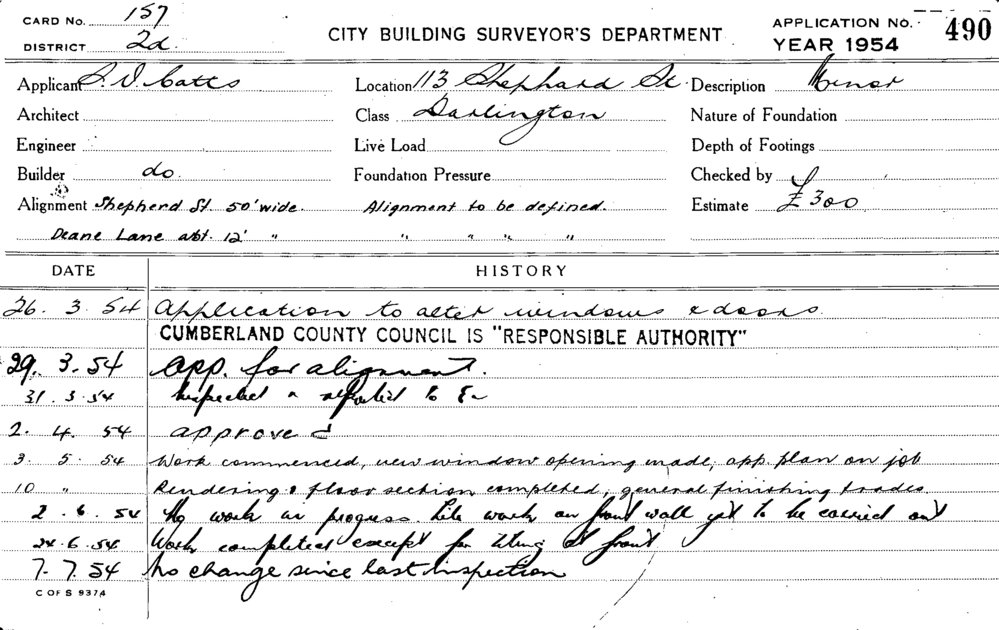 CARD No. 157
DISTRICT 2d.
CITY BUILDING SURVEYOR'S DEPARTMENT
APPLICATION No. 490
YEAR 1954
Applicant Catts Location 113 Shephard St. Description Minor
Architect Class Darlington Nature of Foundation
Engineer Live Load Depth of Footings
Builder do. Foundation Pressure Checked by
Alignment Shepherd St. 50' wide. Alignment to be defined. Estimate £300
Deane Lane abt. 12' " " " " "
DATE HISTORY
26. 3. 54 Application to alter windows & doors.
CUMBERLAND COUNTY COUNCIL IS "RESPONSIBLE AUTHORITY"
29. 3. 54 app. for alignment.
31. 3. 54 Inspected & reported to
2. 4. 54 approved
3. 5. 54 Work commenced, new window opening made, app. plan on job
10 " Rendering & floor section completed, general finishing trades
2. 6. 54 No work in progress. Tile work on front wall yet to be carried out
24. 6. 54 Work completed except for tiling at front
7. 7. 54 No change since last inspection
C OF S 9374